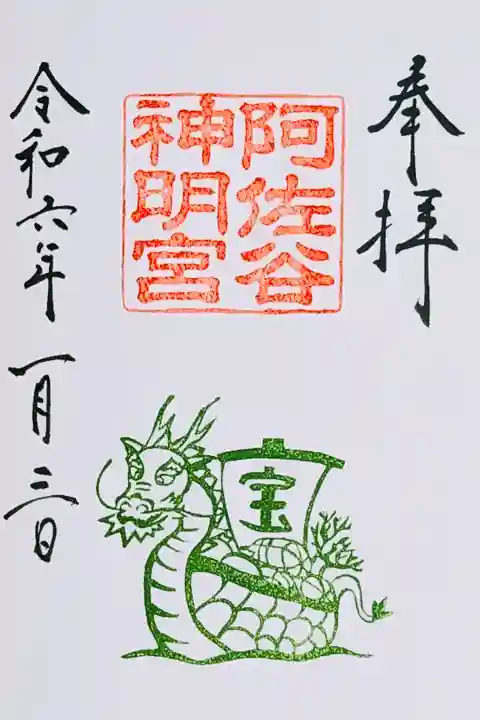 奉拝
阿佐谷
神明宮
宝
令和六年一月三日